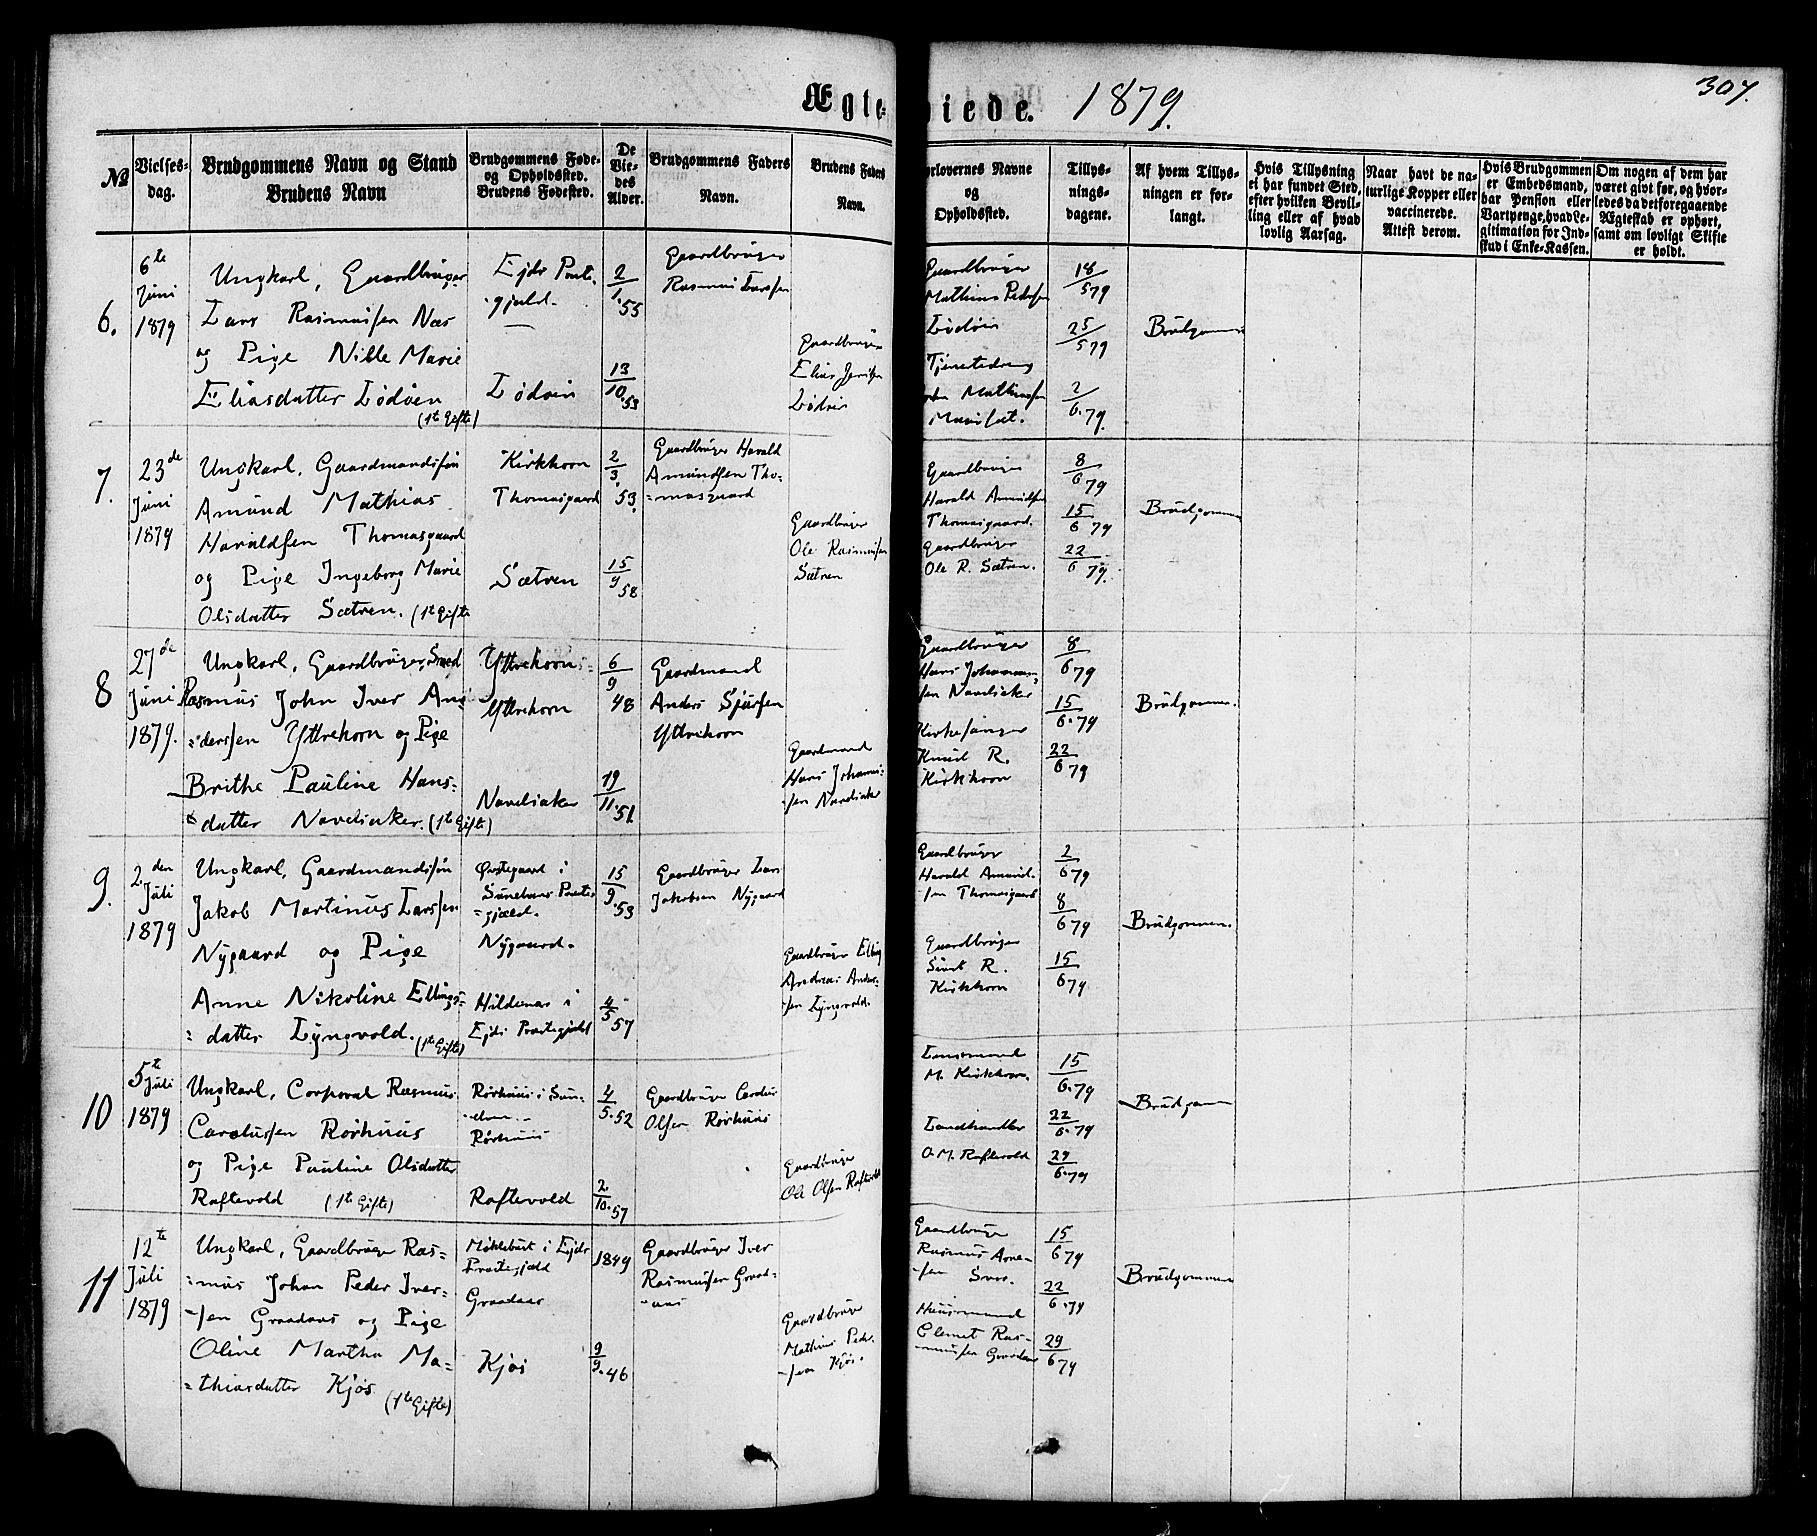 Ægte-
viede. 1879.
307.
№
Vielses-
dag.
Brudgommens Navn og Stand
Brudens Navn
Brudgommens Føde-
og Opholdssted.
Brudens Fødested.
De
Vie-
des
Alder.
Brudgommens Faders
Navn.
Brudens Faders
Navn.
orlovernes Navne
og
Opholdssted.
Tillys-
nings-
dagene.
Af hvem Tillys-
ningen er for-
langt.
Hvis Tillysning
ei har fundet Sted,
efter hvilken Bevil-
ling eller af hvad
lovlig Aarsag.
Naar havt de na-
turlige Kopper eller
vaccinerede.
Attest derom.
Hvis Brudgommen
er Embedsmand,
har Pension eller
Vartpenge, hvad Le-
gitimation for Ind-
skud i Enke-Kassen.
Om nogen af dem har
været givt før, og hvor-
ledes da det foregaaende
Ægteskab er ophørt,
samt om lovligt Skifte
er holdt.
6.
6te
Juni
1879
Ungkarl, Gaardbruger
Lars Rasmussen Næs
og Pige Nille Marie
Eliasdatter Lødøen
(1te Gifte)
Ejds Præste-
gjæld.
Lødøen
2/1.55
13/10.53
Gaardbruger
Rasmus Larssen
Gaardbruger
Elias Jenssen
Lødøen
Gaardbruger
Mathias Pedersen
Lødøen
Tjenestedreng
Mathiassen
18/5 79
25/5 79
2/6.79.
Brudgommen
7.
23de
Juni
1879
Ungkarl, Gaardmandssøn
Amund Mathias
Haraldsen Thomasgaard
og Pige Ingeborg Marie
Olsdatter Sætren. (1te Gifte
Kirkhorn
Thomasgaard
Sætren
2/3.53.
15/9 58
Gaardbruger Harald
Amundsen Tho-
=masgaard
Gaardbruger
Ole Rasmussen
Sætren
Gaardbruger
Harald Amundsen
Thomasgaard.
Gaardbruger
Ole R. Sætren.
8/6 79
15/6 79
22/6 79.
Brudgommen
8
27de
Juni
1879.
Ungkarl, Gaardbruger, Smed
Rasmus John Iver An-
=derssen Yttrehorn og Pige
Brithe Pauline Hans-
datter Navelsaker. (1te Gifte)
Yttrehorn
Yttrehorn
Navelsaker
6/9 48
19/11.51.
Gaardmand
Anders Sjursen
Yttrehorn
Gaardmand
Hans Johannes-
sen Navelsaker
Gaardbruger
Hans Johannes-
sen Navelsaker
Kirkesanger
Knud R.
Kirkhorn
8/6 79
15/6.79
22/6 79
Brudgommen.
9.
2den
Juli
1879
Ungkarl, Gaardmandssøn
Jakob Martinus Larssen
Nygaard og Pige
Anne Nikoline Ellings-
=datter Lyngvold. (1te Gifte)
Ørstegaard i
Sunelvens Præste-
=gjæld.
Nygaard.
Hildenæs i
Ejds Præstegjæld
15/9.53
4/5 57
Gaardbruger Lars
Jakobsen Nygaard
Gaardbruger Elling
Andreas Anders-
sen Lyngvold.
Gaardbruger
Harald Amund-
sen Thomasgaard
Gaardbruger
Sivert R.
Kirkhorn
2/6 79
8/6 79
15/6 79
Brudgommen.
10
5te
Juli
1879
Ungkarl, Corporal Rasmus
Carolussen Rørhuus
og Pige Pauline Olsdatter
Raftevold (1te Gifte)
Rørhuus i Sun-
elven
Rørhuus
Raftevold
4/5.52
2/10.57
Gaardbruger Carolus
Olsen Rørhuus
Gaardbruger
Ole Olsen Raftevold
Lensmand
M. Kirkhorn.
Landhandler
O. M. Raftevold
15/6.79
22/6.79
29/6.79
Brudgommen
11
12te
Juli
1879
Ungkarl, Gaardbruger Ras-
=mus Johan Peder Iver-
-sen Graadaas og Pige
Oline Martha Ma-
=thiasdatter Kjøs
(1te Gifte)
Myklebust i Ejds
Præstegjæld
Graadaas
Kjøs
1849
9/9.46
Gaardbruger Iver
Rasmussen Graad-
=aas
Gaardbruger
Mathias Peder-
-sen Kjøs.
Gaardbruger
Rasmus Arne-
-sen Svor.
Huusmand
Clemet Ras-
mussen Graadaas
15/6 79
22/6.79
29/6 79
Brudgommen